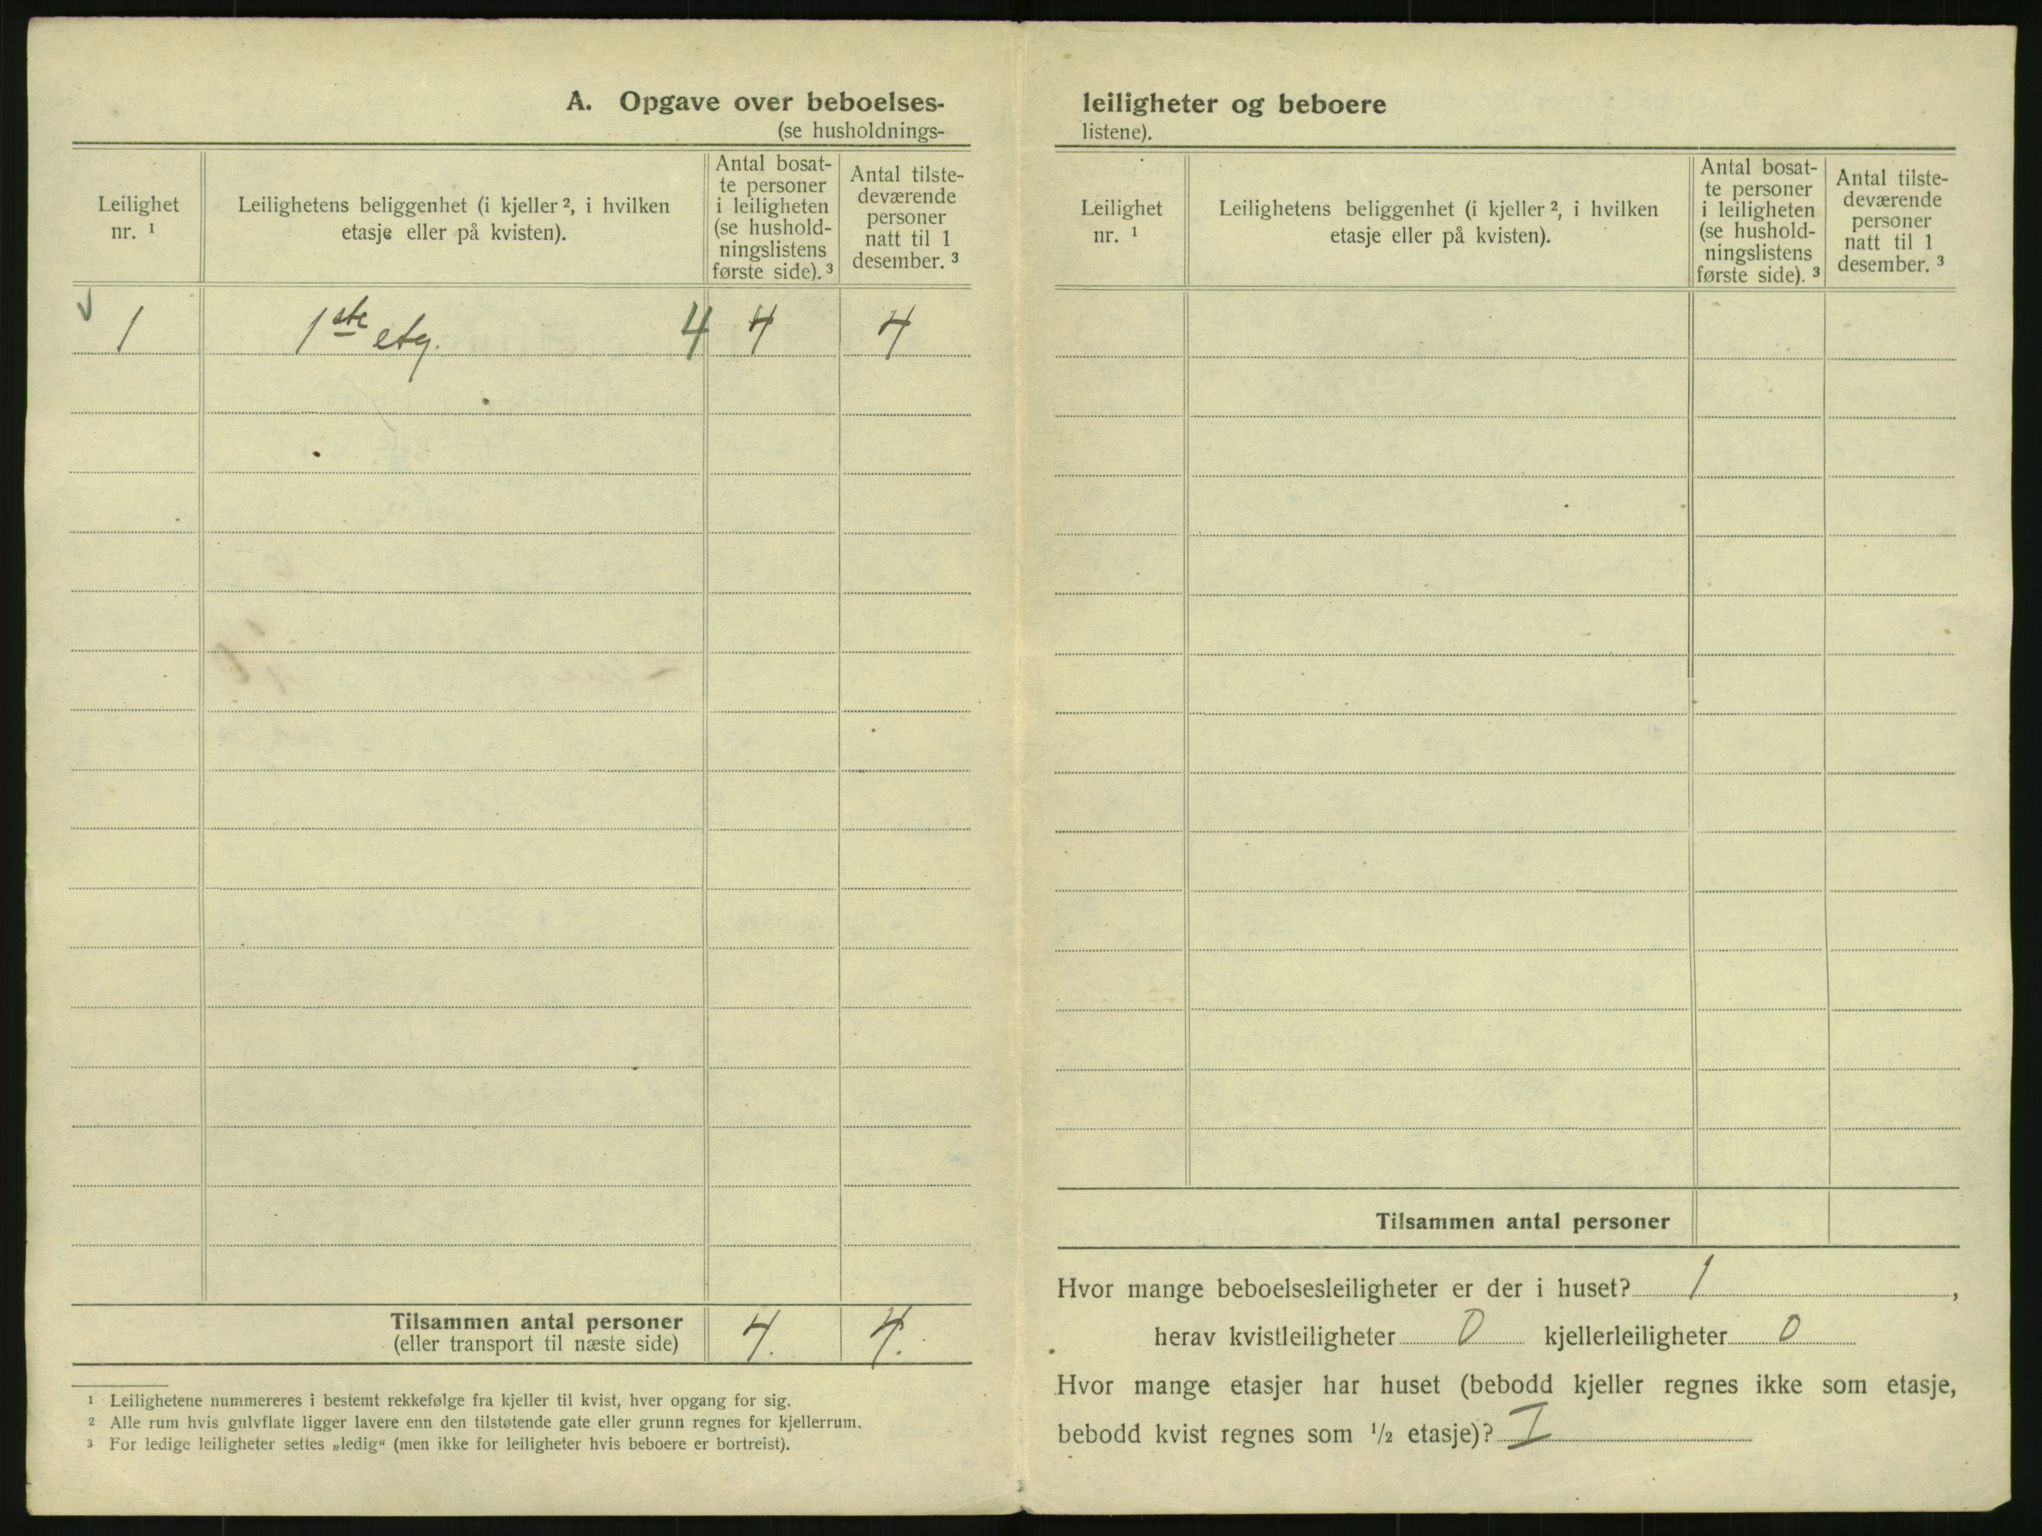 A. Opgave over beboelses-
(se husholdnings-
Leilighet
nr. ¹
Leilighetens beliggenhet (i kjeller ², i hvilken
etasje eller på kvisten).
Antal bosat-
te personer
i leiligheten
(se hushold-
ningslistens
første side). ³
Antal tilste-
deværende
personer
natt til 1
desember. ³
✓ 1 1ste etg. 4 4 4
Tilsammen antal personer 4. 4.
(eller transport til næste side)
¹ Leilighetene nummereres i bestemt rekkefølge fra kjeller til kvist, hver opgang for sig.
² Alle rum hvis gulvflate ligger lavere enn den tilstøtende gate eller grunn regnes for kjellerrum.
³ For ledige leiligheter settes „ledig“ (men ikke for leiligheter hvis beboere er bortreist).
leiligheter og beboere
listene).
Leilighet
nr. ¹
Leilighetens beliggenhet (i kjeller ², i hvilken
etasje eller på kvisten).
Antal bosat-
te personer
i leiligheten
(se hushold-
ningslistens
første side). ³
Antal tilste-
deværende
personer
natt til 1
desember. ³
Tilsammen antal personer
Hvor mange beboelsesleiligheter er der i huset? 1,
herav kvistleiligheter 0 kjellerleiligheter 0
Hvor mange etasjer har huset (bebodd kjeller regnes ikke som etasje,
bebodd kvist regnes som ½ etasje)? I